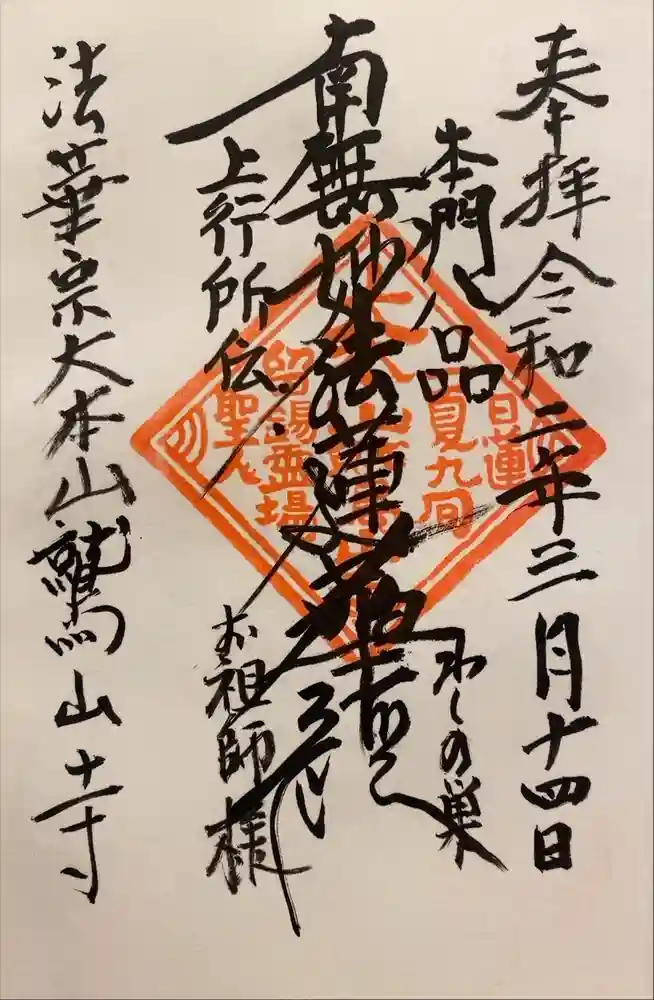 奉拝 令和二年三月十四日
本門八品
わしの巣
南無妙法蓮華経
上行所伝
お祖師様
法華宗大本山鷲山寺
日蓮
聖人
留錫霊場